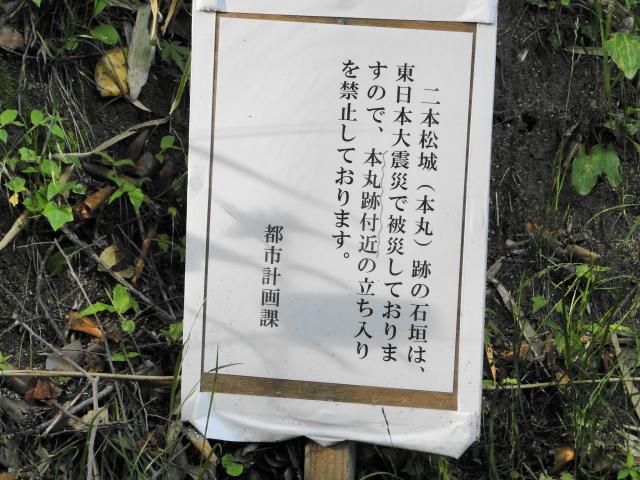 二本松城（本丸）跡の石垣は、
東日本大震災で被災しておりま
すので、本丸跡付近の立ち入り
を禁止しております。
都市計画課